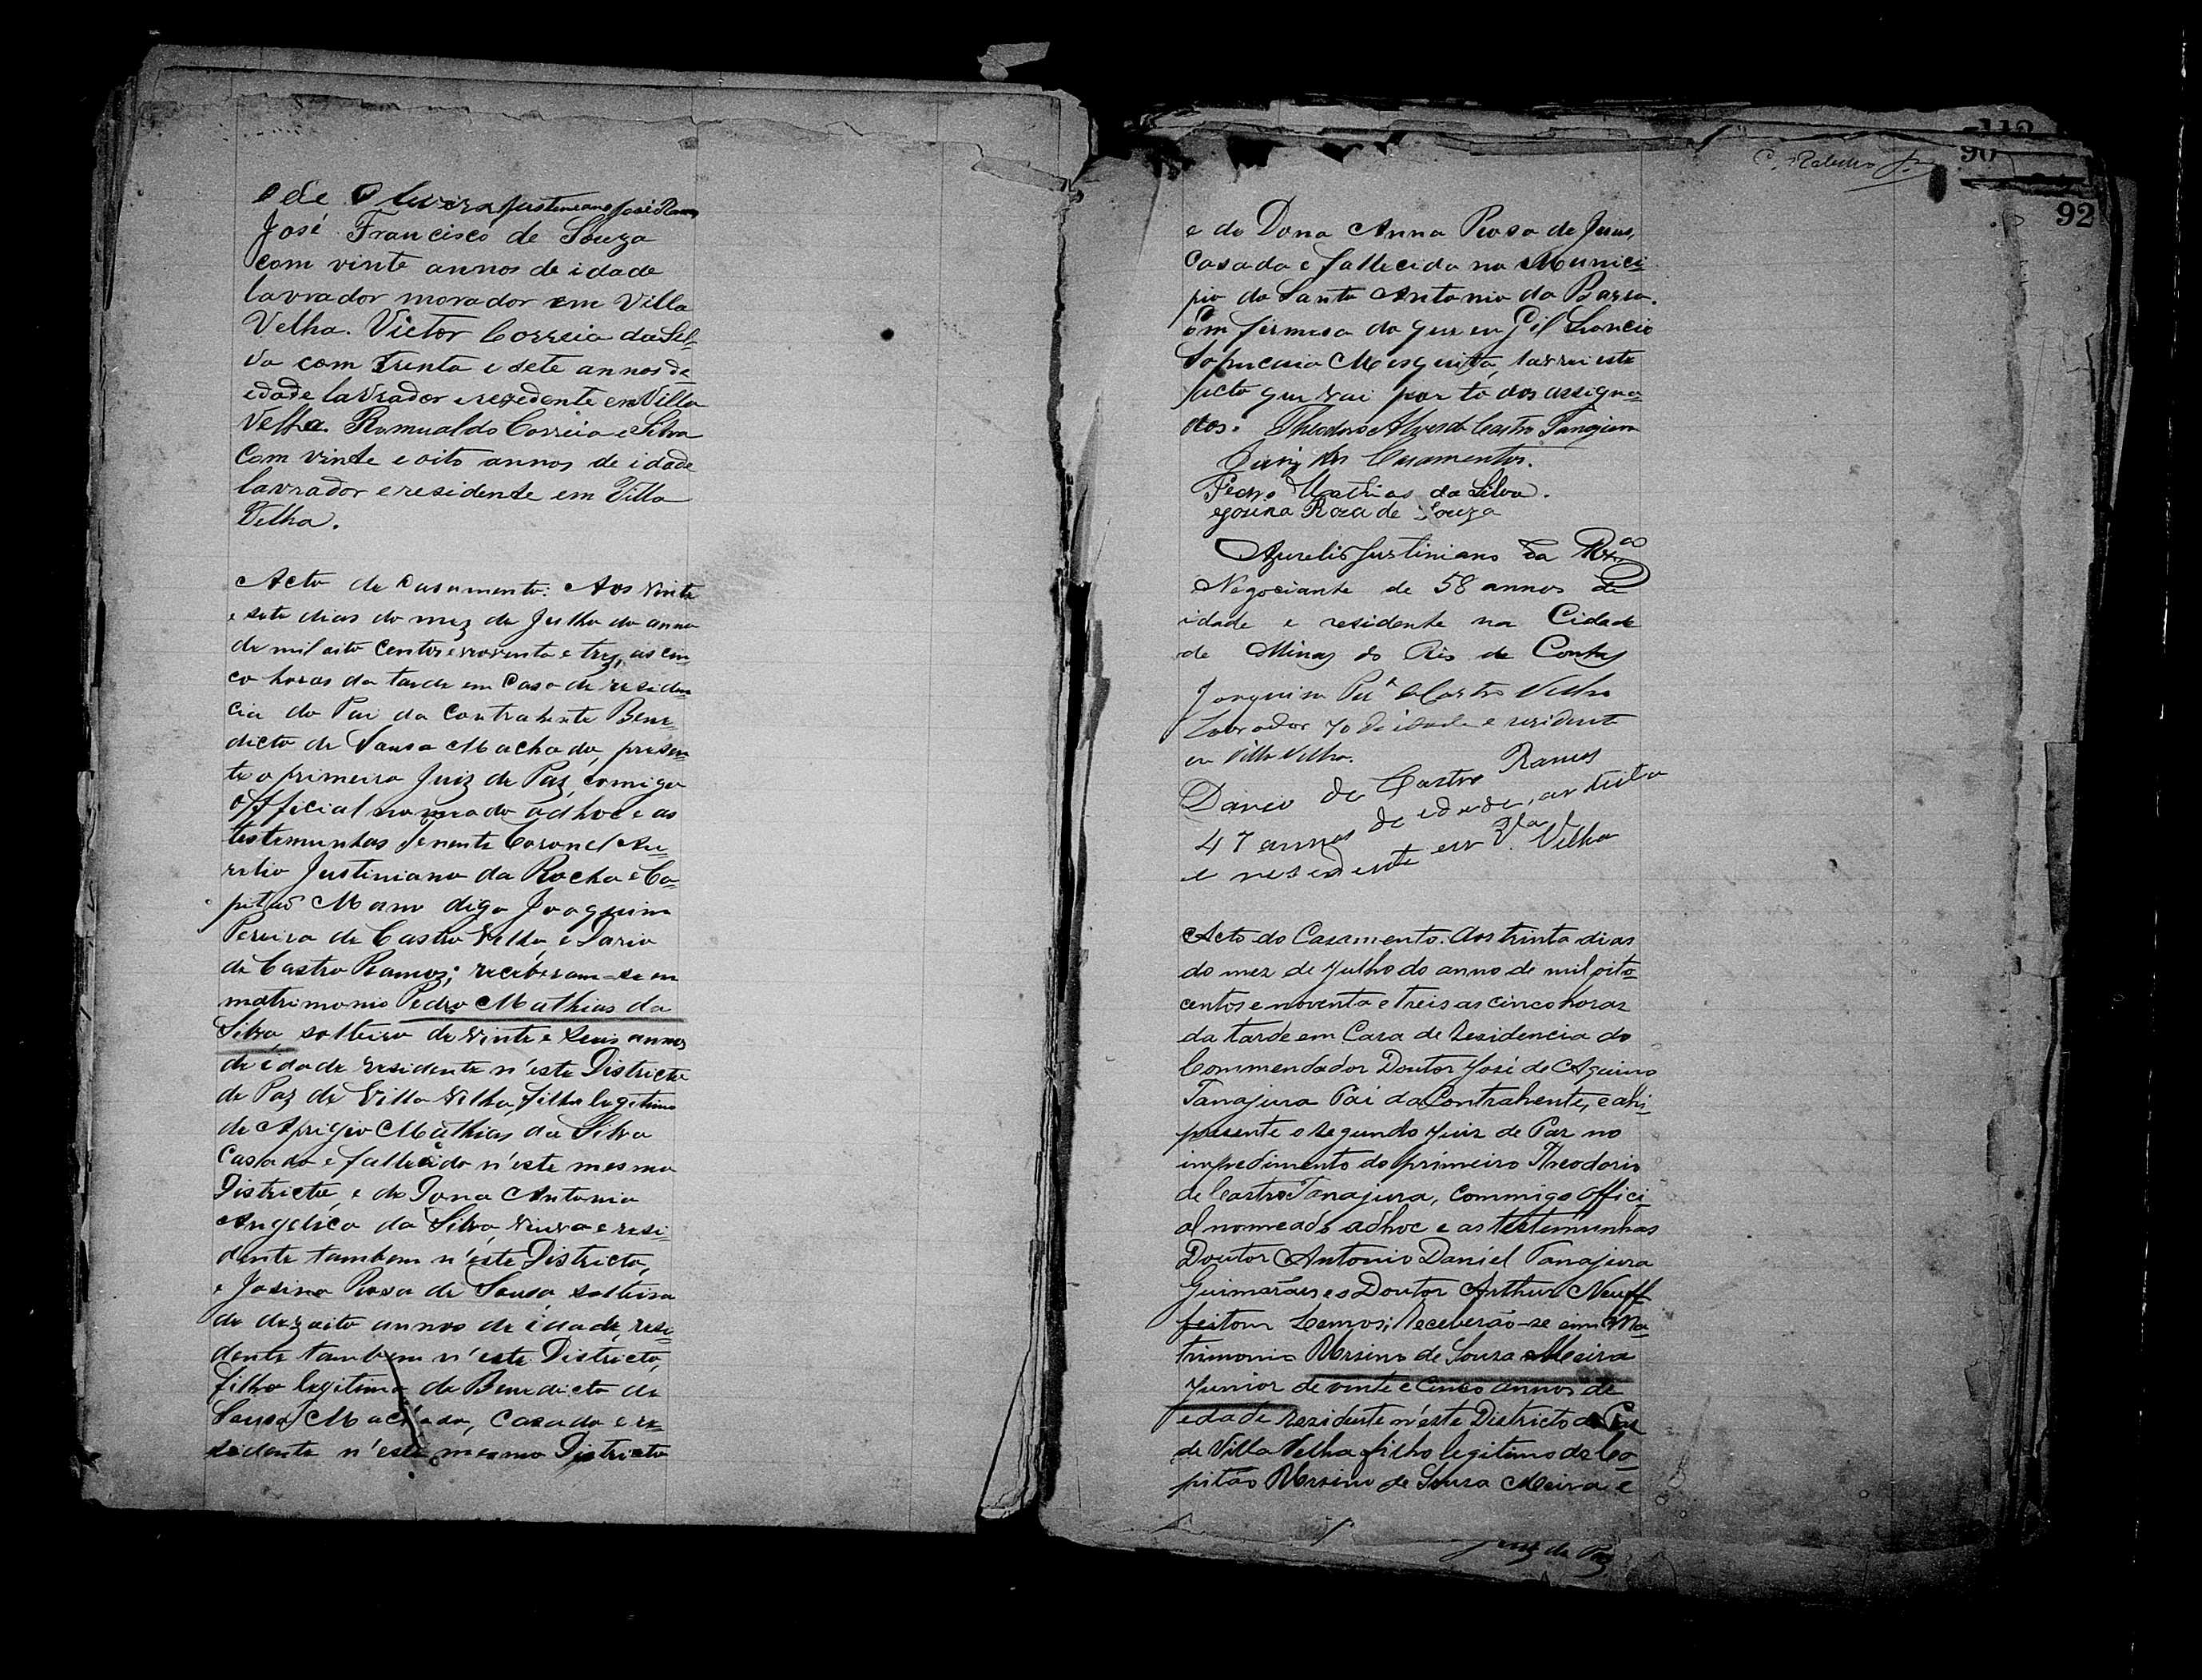 e de Oliveira Justiniano José Ramos
José Francisco de Souza
com vinte annos de idade
lavrador morador em Villa
Velha. Victor Correia da Sil-
va com trenta e sete annos de
edade lavrador e resedente em Villa
Velha. Romualdo Correia e Silva
Com vinte e oito annos de idade
lavrador e residente em Villa
Velha.
Acto de Casamento. Aos vinte
e sete dias do mez de Julho do anno
de mil oito centos e noventa e trez, as cin-
co horas da tarde em Casa de residen-
cia do Pai da Contrahente Bene-
dicto de Sousa Machado, presen-
te o primeiro Juiz de Paz, comigo
official nomeado adhoc e as
testemunhas Tenente Coronel Au-
relio Justiniano da Rocha e Ca-
pitão Mano digo Joaquim
Pereira de Castro Velho e Dario
de Castro Ramos; receberam-se em
matrimonio Pedro Mathias da
Silva solteiro de vinte e seis annos
de idade residente n'este Districto
de Paz de Villa Velha, filho legitimo
de Aprigio Mathias da Silva
Casado e fallecido n'este mesmo
Districto, e de Dona Antonia
Angelica da Silva, viuva e resi-
dente tambem n'este Districto,
e Josina Rosa de Sousa, solteira
de dezoito annos de idade, resi-
dente tambem n'este Districto,
filha legitima de Benedicto de
Sousa Machado, Casado e re-
sidente n'este mesmo Districto
112
90
92
e de Dona Anna Rosa de Jesus,
Casada e fallecida no Munici-
pio de Santo Antonio da Barra.
Em firmesa do que eu Gil Leoncio
Sapucaia Mesquita, lavrei este
acto que vai por todos assigna-
dos. Theodoro Alves de Castro Tanajura
Juiz dos Casamentos.
Pedro Mathias da Silva.
Josina Roza de Souza
Aurelio Justiniano da Rxª
Negociante de 58 annos de
idade e residente na Cidade
de Minas do Rio de Contas
Joaquim Perª de Castro Velho
Lavrador 70 de idade e residente
em Villa Velha.
Dario de Castro Ramos
47 annos de edade, artista
e resedente em Vª Velha
Acto do Casamento. Aos trinta dias
do mez de Julho do anno de mil oito-
centos e noventa e treis as cinco horas
da tarde em Caza de Residencia do
Commendador Doutor José de Aquino
Tanajura Pai da Contrahente, e ahi
presente o segundo juiz de Paz no
impedimento do primeiro Theodorio
de Castro Tanajura, Commigo offici-
al nomeado adhoc e as testemunhas
Doutor Antonio Daniel Tanajura
Guimarães e o Doutor Arthur Neuff
feitom Lemos; Receberão-se em Ma-
trimonio Ursino de Souza Meira
Junior de vinte e Cinco annos de
edade rezidente n'este Districto de Paz
de Villa Velha filho legitimo do Ca-
pitão Ursino de Souza Meira e
Juiz de Paz